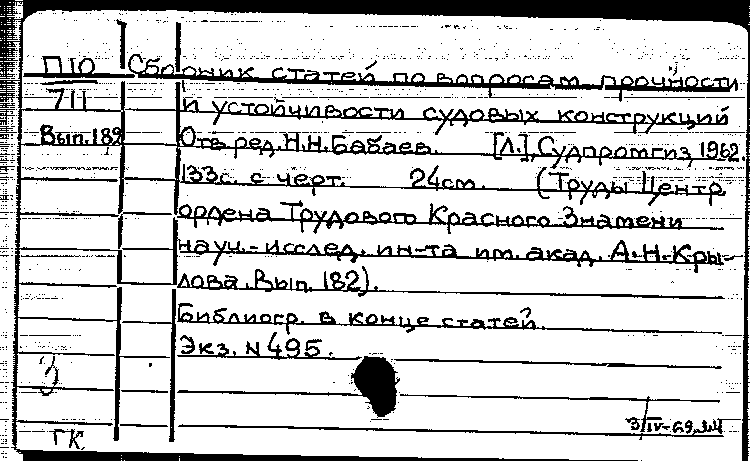 П10 Сборник статей по вопросам прочности
711 и устойчивости судовых конструкций
Вып.182 Отв. ред. Н.Н.Бабаев. [Л.], Судпромгиз, 1962.
133с. с черт. 24см. (Труды Центр.
ордена Трудового Красного Знамени
науч.-исслед. ин-та им. акад. А.Н.Кры-
лова. Вып. 182).
Библиогр. в конце статей.
Экз. N 495.
3
ГК